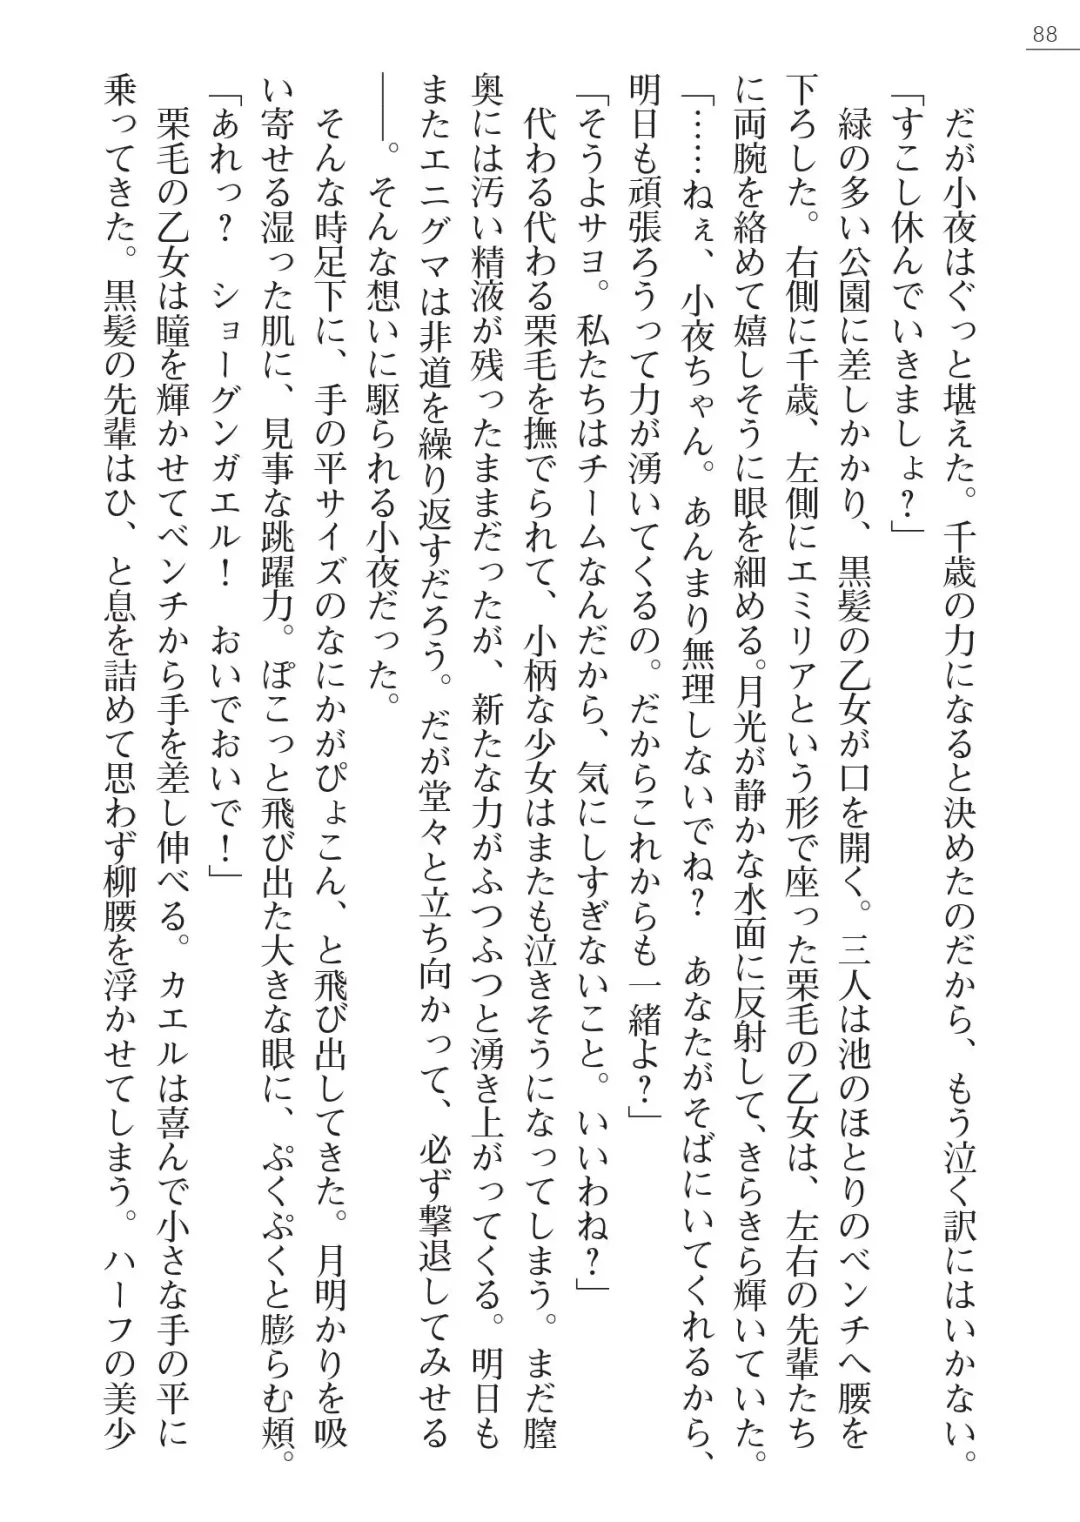 88
だが小夜はぐっと堪えた。千歳の力になると決めたのだから、もう泣く訳にはいかない。
「すこし休んでいきましょ？」
緑の多い公園に差しかかり、黒髪の乙女が口を開く。三人は池のほとりのベンチへ腰を
下ろした。右側に千歳、左側にエミリアという形で座った栗毛の乙女は、左右の先輩たち
に両腕を絡めて嬉しそうに眼を細める。月光が静かな水面に反射して、きらきら輝いていた。
「……ねぇ、小夜ちゃん。あんまり無理しないでね？　あなたがそばにいてくれるから、
明日も頑張ろうって力が湧いてくるの。だからこれからも一緒よ？」
「そうよサヨ。私たちはチームなんだから、気にしすぎないこと。いいわね？」
代わる代わる栗毛を撫でられて、小柄な少女はまたも泣きそうになってしまう。
新たな力がふつふつと湧き上がってくる。明日も
またエニグマは非道を繰り返すだろう。だが堂々と立ち向かって、必ず撃退してみせる
――。そんな想いに駆られる小夜だった。
そんな時足下に、手の平サイズのなにかがぴょこん、と飛び出してきた。月明かりを吸
い寄せる湿った肌に、見事な跳躍力。ぽこっと飛び出た大きな眼に、ぷくぷくと膨らむ頬。
「あれっ？　ショーグンガエル！　おいでおいで！」
栗毛の乙女は瞳を輝かせてベンチから手を差し伸べる。カエルは喜んで小さな手の平に
乗ってきた。黒髪の先輩はひ、と息を詰めて思わず柳腰を浮かせてしまう。ハーフの美少